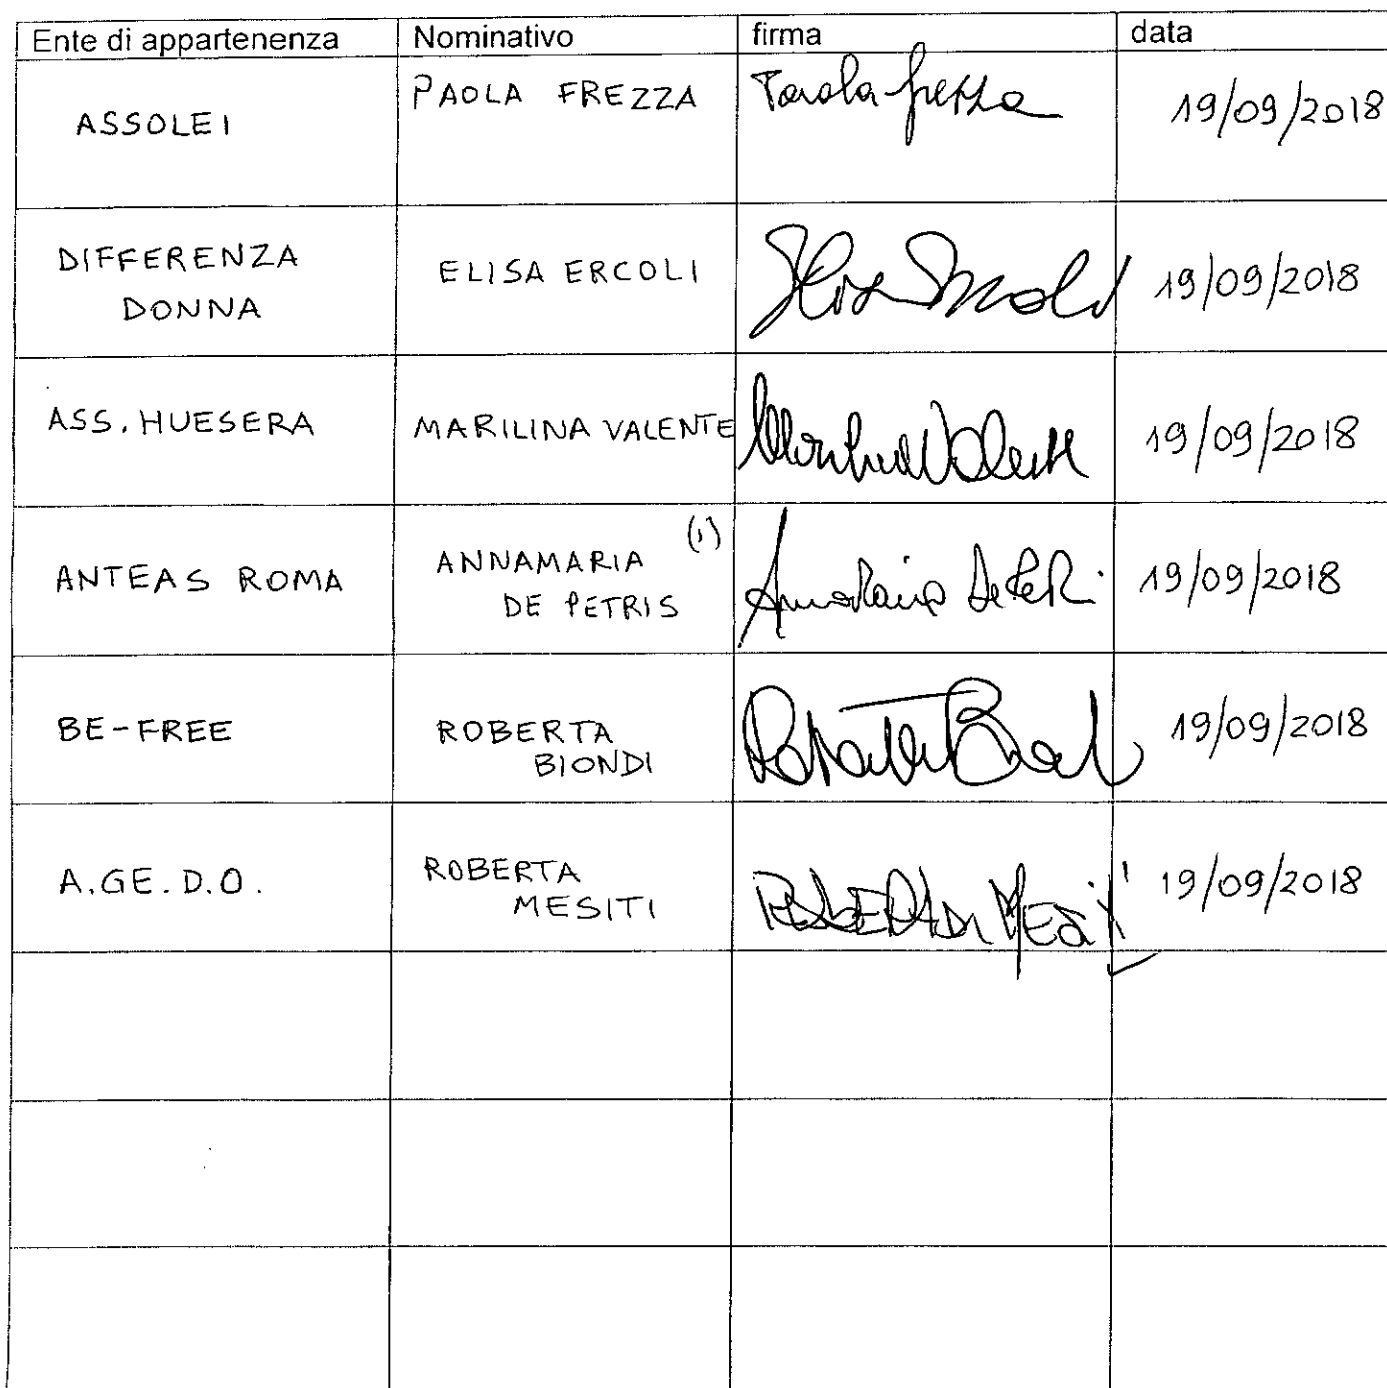 Ente di appartenenza Nominativo firma data
ASSOLEI PAOLA FREZZA Paola Frezza 19/09/2018
DIFFERENZA ELISA ERCOLI Elisa Ercoli 19/09/2018
DONNA
ASS. HUESERA MARILINA VALENTE Marilina Valente 19/09/2018
ANTEAS ROMA ANNAMARIA (1) Annamaria De Petris 19/09/2018
DE PETRIS
BE-FREE ROBERTA Roberta Biondi 19/09/2018
BIONDI
A.GE.D.O. ROBERTA ROBERTA MESITI 19/09/2018
MESITI